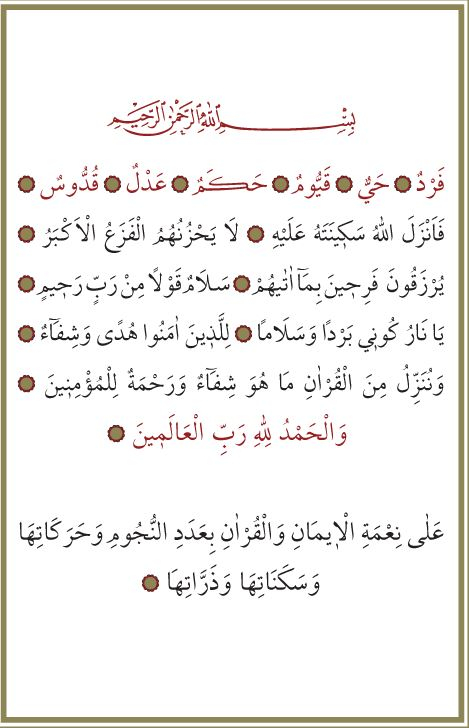 بِسْمِ اللّٰهِ الرَّحْمٰنِ الرَّحِيمِ
فَرْدٌ ۞ حَيٌّ ۞ قَيُّومٌ ۞ حَكَمٌ ۞ عَدْلٌ ۞ قُدُّوسٌ ۞
فَاَنْزَلَ اللّٰهُ سَكِينَتَهُ عَلَيْهِ ۞ لَا يَحْزُنُهُمُ الْفَزَعُ الْاَكْبَرُ ۞
يُرْزَقُونَ فَرِحِينَ بِمَآ اٰتٰيهُمْ ۞ سَلَامٌ قَوْلًا مِنْ رَبٍّ رَحِيمٍ ۞
يَا نَارُ كُونِي بَرْدًا وَسَلَامًا ۞ لِلَّذِينَ اٰمَنُوا هُدًى وَشِفَآءٌ ۞
وَنُنَزِّلُ مِنَ الْقُرْاٰنِ مَا هُوَ شِفَآءٌ وَرَحْمَةٌ لِلْمُؤْمِنِينَ ۞
وَالْحَمْدُ لِلّٰهِ رَبِّ الْعَالَمِينَ ۞
عَلٰى نِعْمَةِ الْاِيمَانِ وَالْقُرْاٰنِ بِعَدَدِ النُّجُومِ وَحَرَكَاتِهَا
وَسَكَنَاتِهَا وَذَرَّاتِهَا ۞